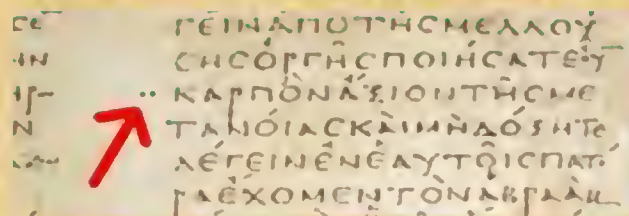 ΓΕΙΝΑΠΟΤΗСΜΕΛΛΟΥ
СΗСΟΡΓΗСΠΟΙΗСΑΤΕΟΥ̅
·· ΚΑΡΠΟΝΑΞΙΟΝΤΗСΜΕ
Ν ΤΑΝΟΙΑСΚΑΙΜΗΔΟΞΗΤΕ
ΛΕΓΕΙΝΕΝΕΑΥΤΟΙСΠΑΤΕ
ΡΑΕΧΟΜΕΝΤΟΝΑΒΡΑΑΜ